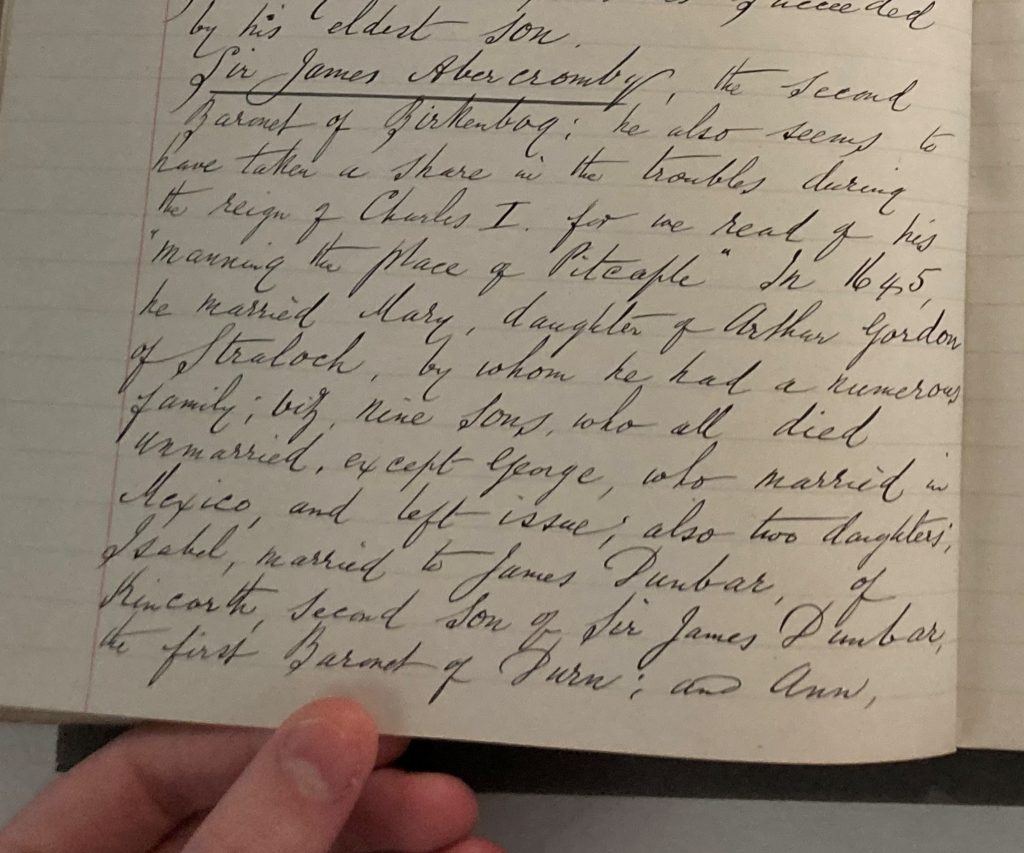 succeeded
by his eldest son.
Sir James Abercromby, the second
Baronet of Birkenbog; he also seems to
have taken a share in the troubles during
the reign of Charles I. for we read of his
"manning the place of Pitcaple" In 1645,
he married Mary, daughter of Arthur Gordon
of Straloch, by whom he had a numerous
family; viz, nine sons, who all died
unmarried, except George, who married in
Mexico, and left issue; also two daughters;
Isabel, married to James Dunbar, of
Kincorth, second son of Sir James Dunbar,
the first Baronet of Durn; and Ann,